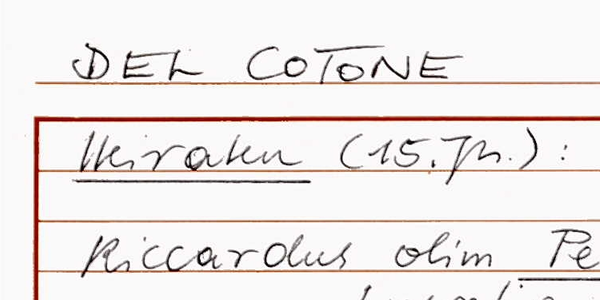 DEL COTONE
Heiraten (15. Jh.):
Riccardus olim Pe